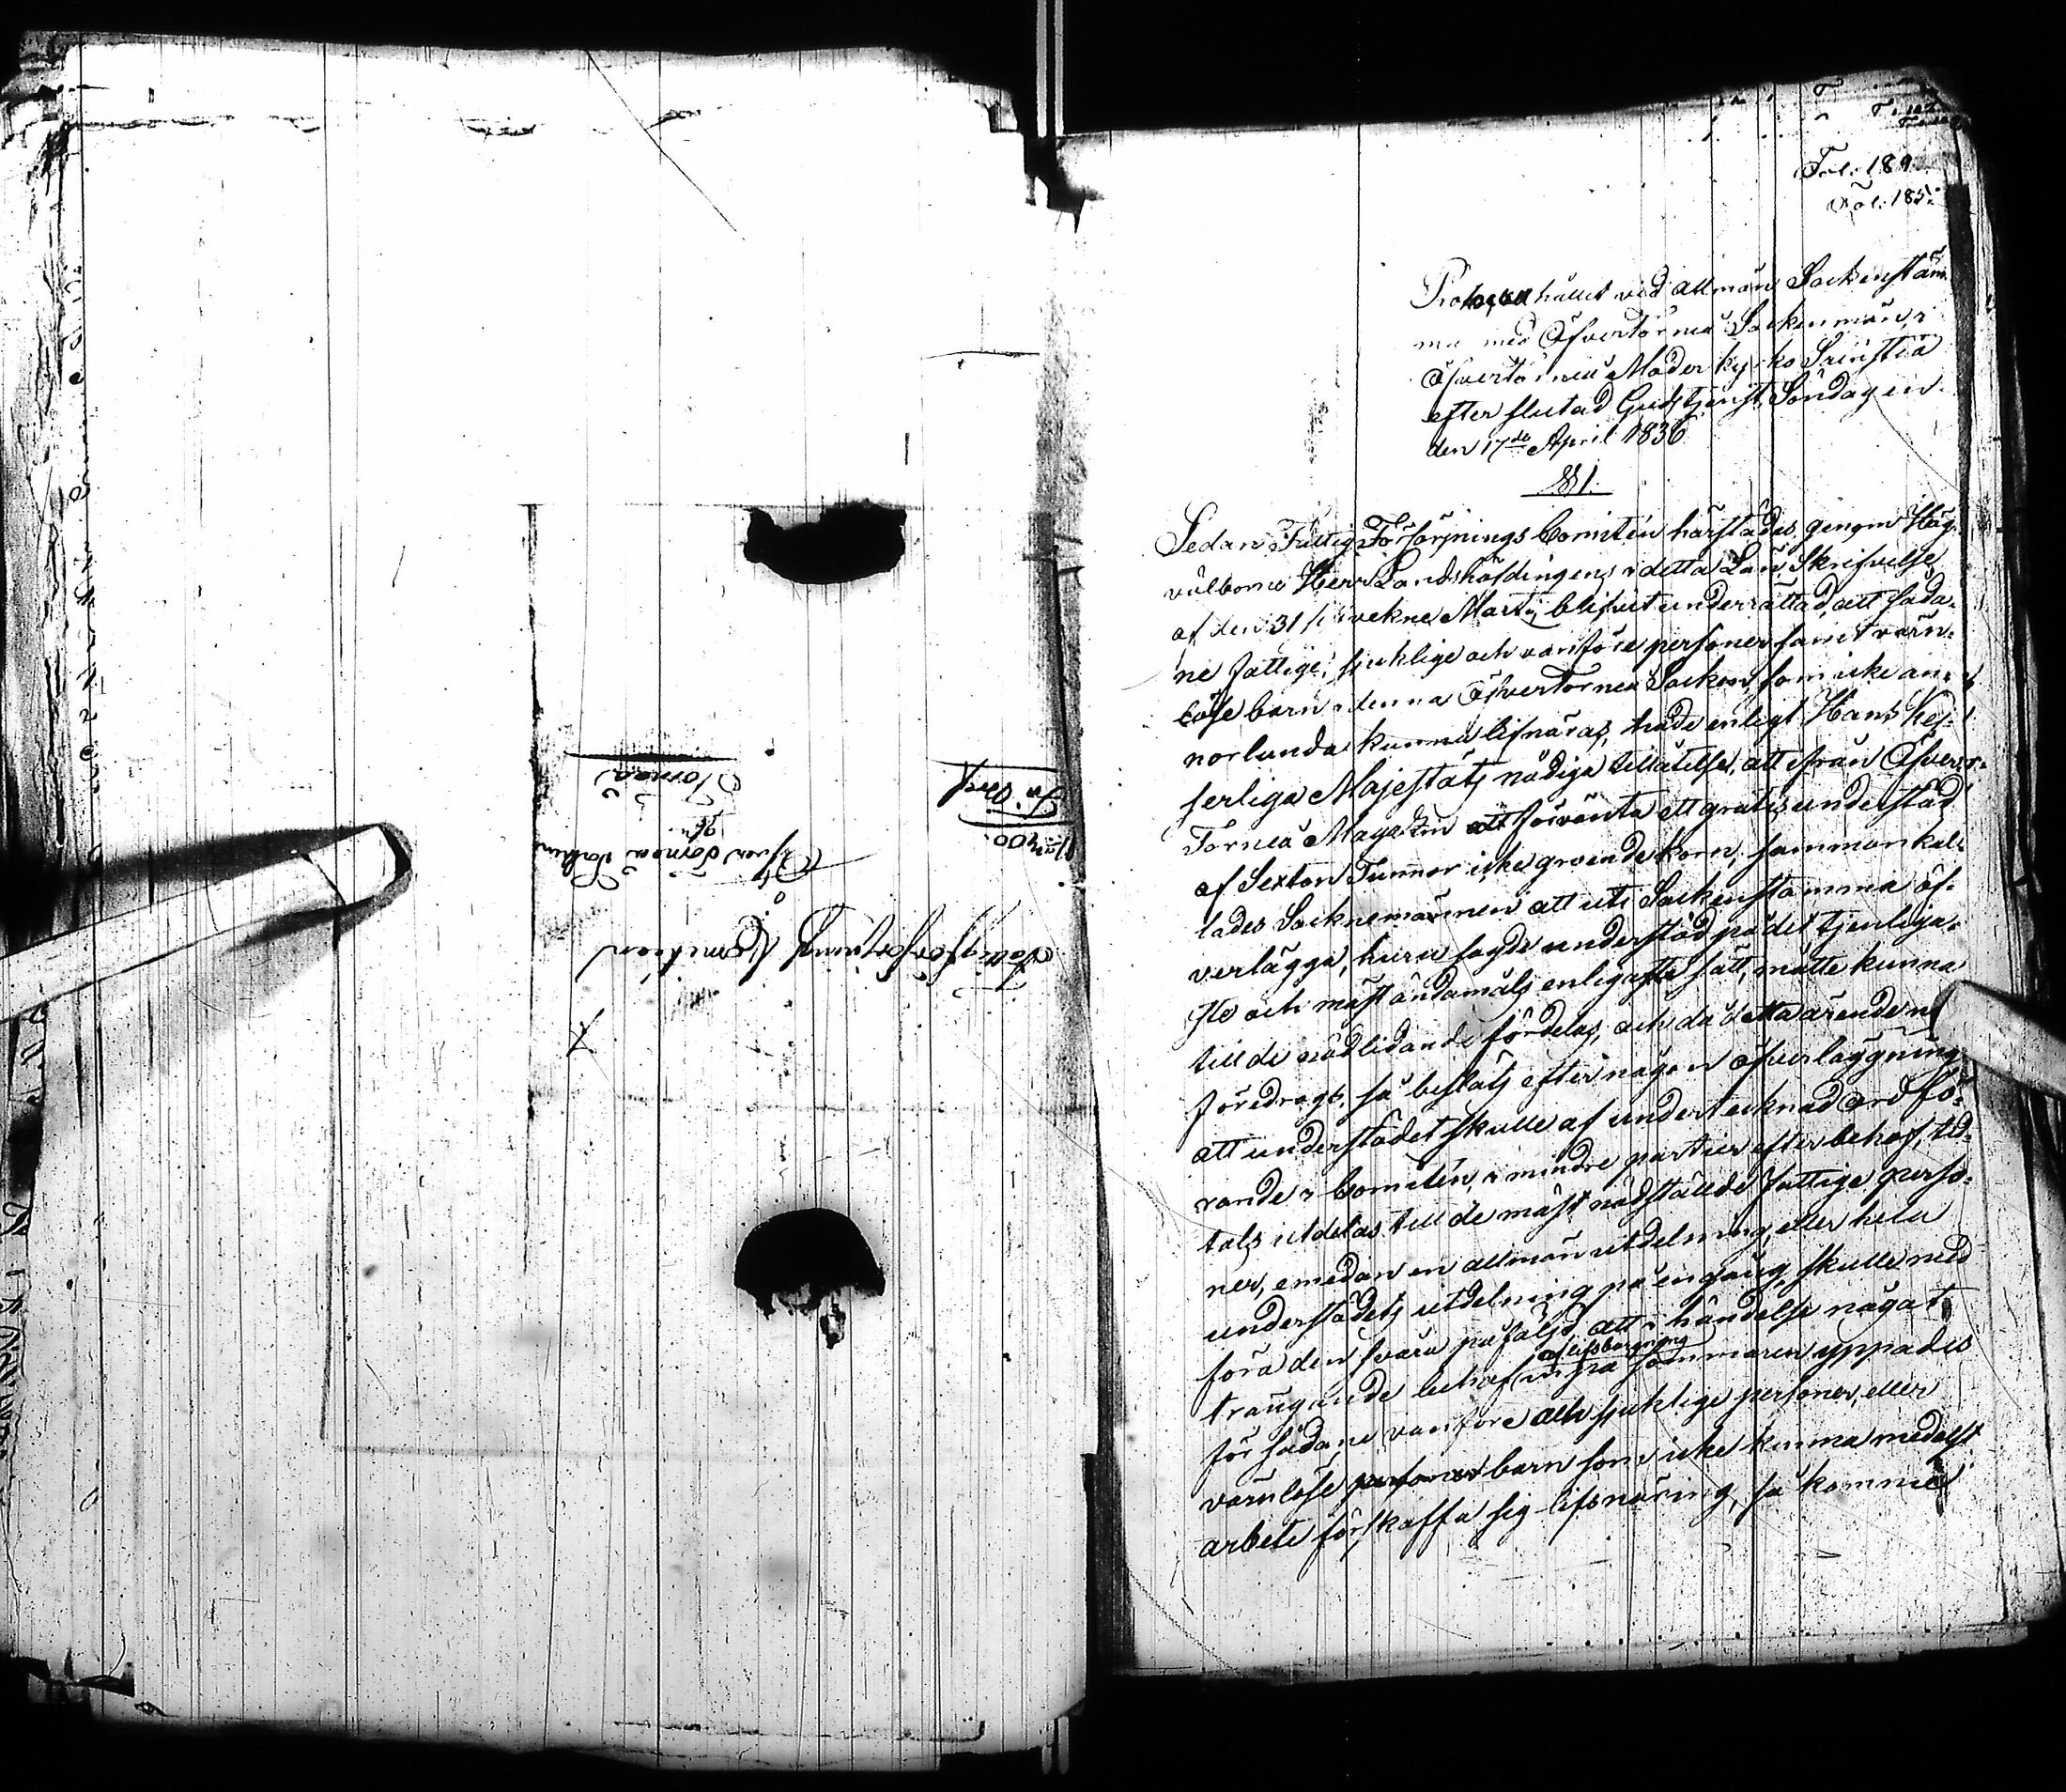 Fattigförsörjnings Comiteen
i
Öfver Torneå Socken
pr
Torneå
No 300.
Fol. 189.
Fol. 185.
Protocoll hållet vid allmän Sockenstäm-
ma med Öfvertorneå Sockenmän, i
Öfvertorneå Moder kyrko Sacristia
efter slutad Gudstjenst Söndagen
den 17de April 1836
§ 1.
Sedan Fattig Försörjnings Comitén härstädes genom Hög-
välborne Herr Landshöfdingens i detta Län Skrifvelse
af den 31 sistvekne Martii blifvit underrättad, att såda-
ne fattige, sjuklige och vanföre personer samt värn-
löse barn i denna Öfvertorneå Socken, som icke an-
norlunda kunna lifnäras, hade enligt Hans Kej-
serliga Majestäts nådiga tillåtelse, att ifrån Öfver-
Torneå Magazin att förvänta ett gratis understöd
af Sexton Tunnor icke groende korn, sammankal-
lades Socknemännen att uti Sockenstämma öf-
verlägga, huru sagde understöd på det tjenliga-
ste och mäst ändamåls enligaste sätt, måtte kunna
till de nödlidande fördelas, och då detta ärende nu
föredrogs, så beslöts efter någon öfverläggning
att understödet skulle af undertecknad ordfö-
rande i Comitén, i mindre partier efter behof, tid-
tals utdelas till de mäst nödstälde fattige perso-
ner, emedan en allmän utdelning, eller hela
understödets utdelning på en gång, skulle med-
föra den svåra påföljd, att i händelse något
trängande behof af lifsbergning inpå sommaren yppades
för sådane vanföre och sjuklige personer, eller
värnlöse personer barn som icke kunna medelst
arbete förskaffa sig lifsnäring, så komme